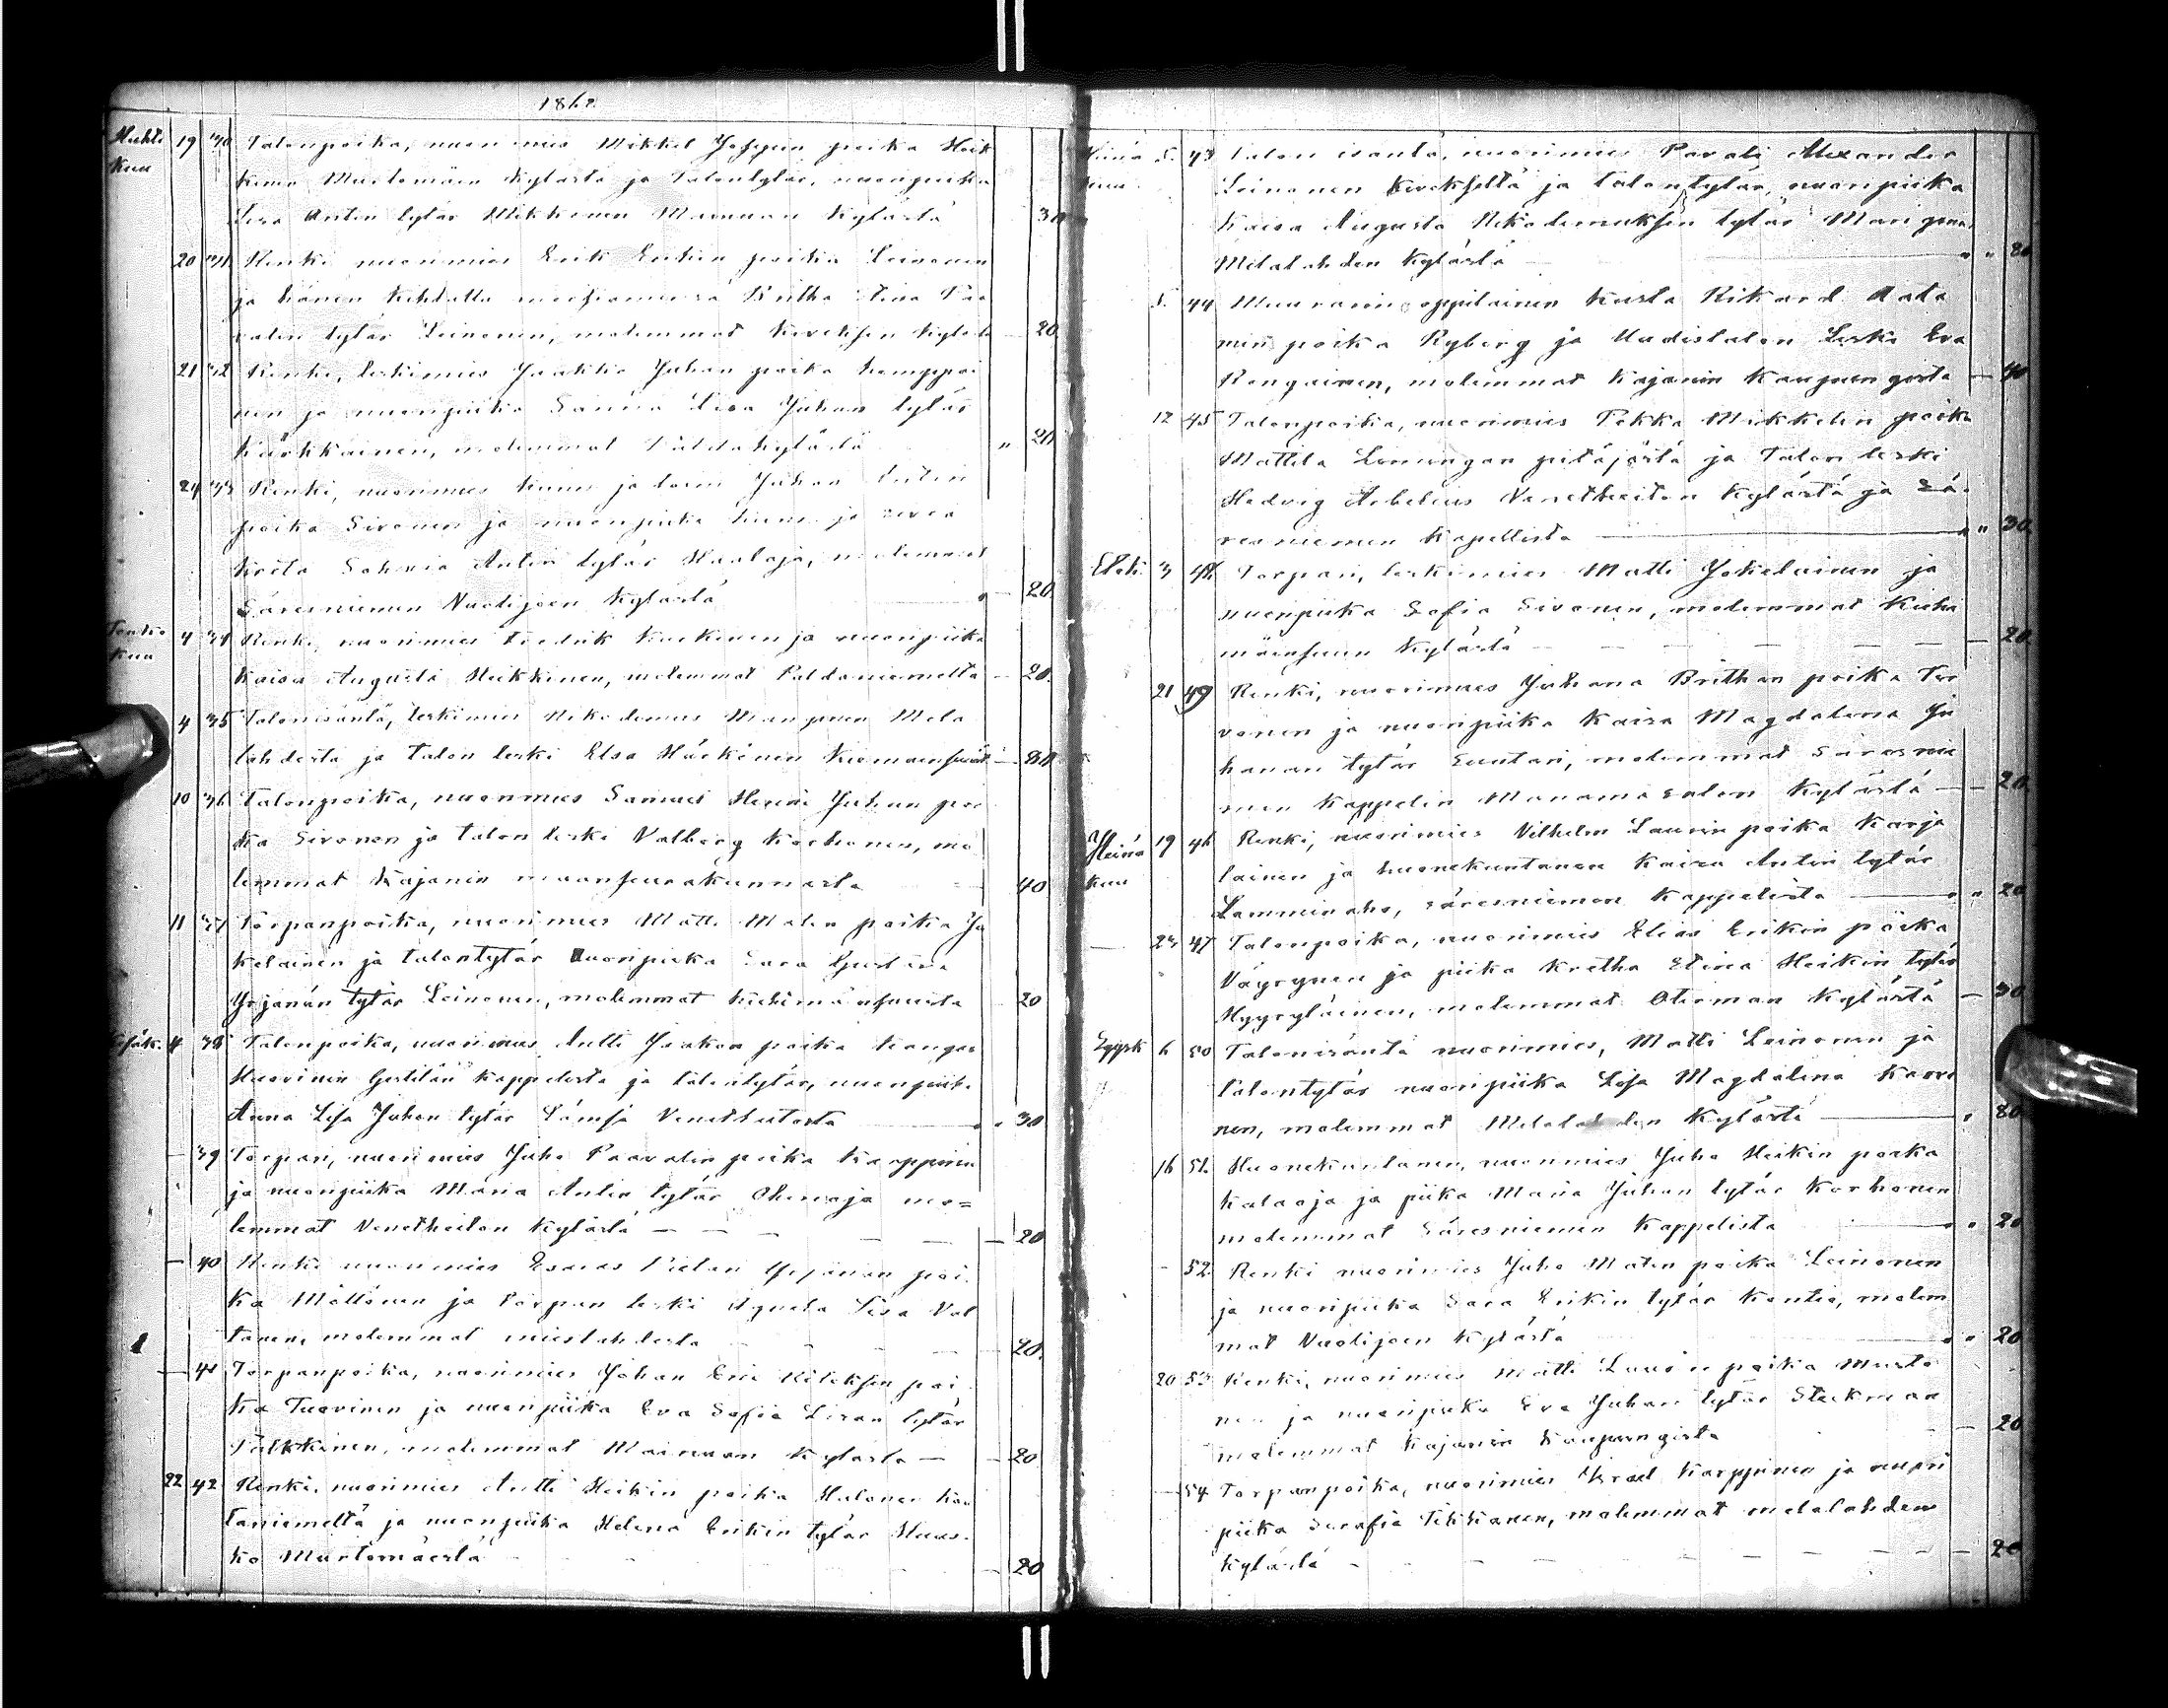 186
Huhti 19 Talonpoika, nuorimies Mikkel poika Heik
kuu kinen Murtomäen kylästä ja Talontytär, nuoripiika
Lisa Antin tytär Mikkonen Mainuan kylästä 30
20 Renki nuorimies Erik Erikin poika Leinonen
ja hänen kihlattu Britha Stina Paa
valin tytär Leinonen, molemmat kylästä 20
21 32 Renki, leskimies Jaakko Juhan poika Kemppai
nen ja nuoripiika Sanna Lisa Juhan tytär
Kärkkäinen, molemmat kylästä " 20
24 33 Renki, nuorimies ja Juhan Antin
poika Sivonen ja nuoripiika
Antin tytär Haataja, molemmat
Säresniemen Vuolijoen kylästä 20
Touko 4 34 Renki, nuorimies Fredrik ja nuoripiika
kuu Kaisa Augusta Heikkinen, molemmat Paldaniemeltä 20.
4 35 Talonisäntä, leskimies Nikodemus Manninen Mela
lahdesta ja talon leski Elsa Härkönen 80
10 36 Talonpoika, nuorimies Samuel Henrik Juhan poi
ka Sivonen ja talon leski Valborg Korhonen, mo
lemmat Kajanin maanseurakunnasta 40
11 37 Torpanpoika, nuorimies Matti Matin poika Jo
kelainen ja talontytär nuoripiika Sara
Yrjänän tytär Leinonen, molemmat 20
Kesäk. 4 38 Talonpoika, nuorimies Antti Jaakon poika Kangas
Huovinen kappelista ja talontytär, nuoripiika
Anna Lisa Juhon tytär Lämsä Venetheitosta " 30
— 39 Torpan, nuorimies Juho Paavalin poika Karppinen
ja nuoripiika Maria Antin tytär Ohenoja mo=
lemmat Venetheiton kylästä — — — — — 20
— 40 Renki nuorimies Esaias Yrjänän poi
ka Möttönen ja torpan leski Agneta Lisa Val
tanen, molemmat mieslahdesta 20.
— 41 Torpanpoika, nuorimies Johan Eric poi
ka Tuovinen ja nuoripiika Eva Sofia Lisan tytär
Pulkkinen, molemmat Mainuan kylästä — 20
22 42 Renki, nuorimies Antti Heikin poika Halonen
taniemeltä ja nuoripiika Helena Erikin tytär Huus-
ko Murtomäestä 20
Heinä 5. 43 Talon isäntä, nuorimies Paavali Alexander
kuu Leinonen ja talontytär, nuoripiika
Kaisa Augusta Nikodemuksen tytär Manninen
Melalahden kylästä " " 80
5. 44 Muurarin oppilainen Kusta Rikard Aata
min poika Ryberg ja Uudistalon Leski Eva
Rongainen, molemmat Kajanin kaupungista — 40
12 45 Talonpoika, nuorimies Pekka Mikkelin poika
Mattila Limingan pitäjästä ja Talon leski
Hedvig Arbelius Venetheiton kylästä ja Sä-
resniemen kapellista " " 30
Elok. 3 48 Torpari, leskimies Matti Jokelainen ja
nuoripiika Sofia Sivonen, molemmat
mäensuun kylästä — — — — — 20
21 49 Renki, nuorimies Juhana Brithan poika Ter
vonen ja nuoripiika Kaisa Magdalena Ju
hanan tytär Suutari, molemmat Säresnie
men kappelin Manamasalon kylästä — — 20
Heinä 19 46 Renki, nuorimies Vilhelm Laurin poika Karja
kuu lainen ja huonekuntanen Kaisa Antin tytär
Lamminaho, säresniemen kappelista " " 20
— 23 47 Talonpoika, nuorimies Elias Erikin poika
Väyrynen ja piika Kretha Stina Heikin tytär
Hyyryläinen, molemmat Oterman kylästä — 30
Syysk 6 50 Talonisäntä nuorimies, Matti Leinonen ja
talontytär nuoripiika Lisa Magdalena Karvo
nen, molemmat Melalahden kylästä " 80
16 51. Huonekuntanen, nuorimies Juho Heikin poika
Kataoja ja piika Maria Juhan tytär Korhonen
molemmat Säresniemen kappelista " " 20
- 52. Renki nuorimies Juho Matin poika Leinonen
ja nuoripiika Sara Erikin tytär Kontio, molem
mat Vuolijoen kylästä " " 20
20 53 Renki, nuorimies Matti Laurin poika Musto
nen ja nuoripiika Eva Juhan tytär Stickman
molemmat Kajanin kaupungista — 20
— 54 Torpanpoika, nuorimies Israel Karppinen ja nuori
piika Serafia Tikkanen, molemmat melalahden
kylästä — — — — — — 20